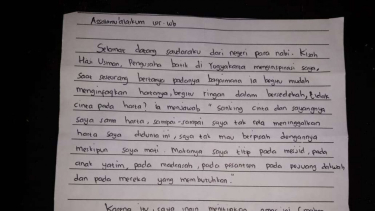 Assamu'alaikum wr. wb
Selamat datang saudaraku dari negeri para nabi. Kisah
Haji Usman, Pengusaha batik di Yogyakarta menginspirasi saya,
saat seseorang bertanya padanya bagaimana ia begitu mudah
menginfaqkan hartanya, begitu ringan dalam bersedekah, tidak
cinta pada harta? Ia menjawab " Sanking cinta dan sayangnya
saya sama harta, sampai-sampai saya tak rela meninggalkan
harta saya didunia ini, saya tak mau berpisah dengannya
meskipun saya mati. Makanya saya titip pada masjid, pada
anak yatim, pada madrasah, pada pesantren pada pejuang dakwah
dan pada mereka yang membutuhkan."
Karena itu, saya ingin menitipkan